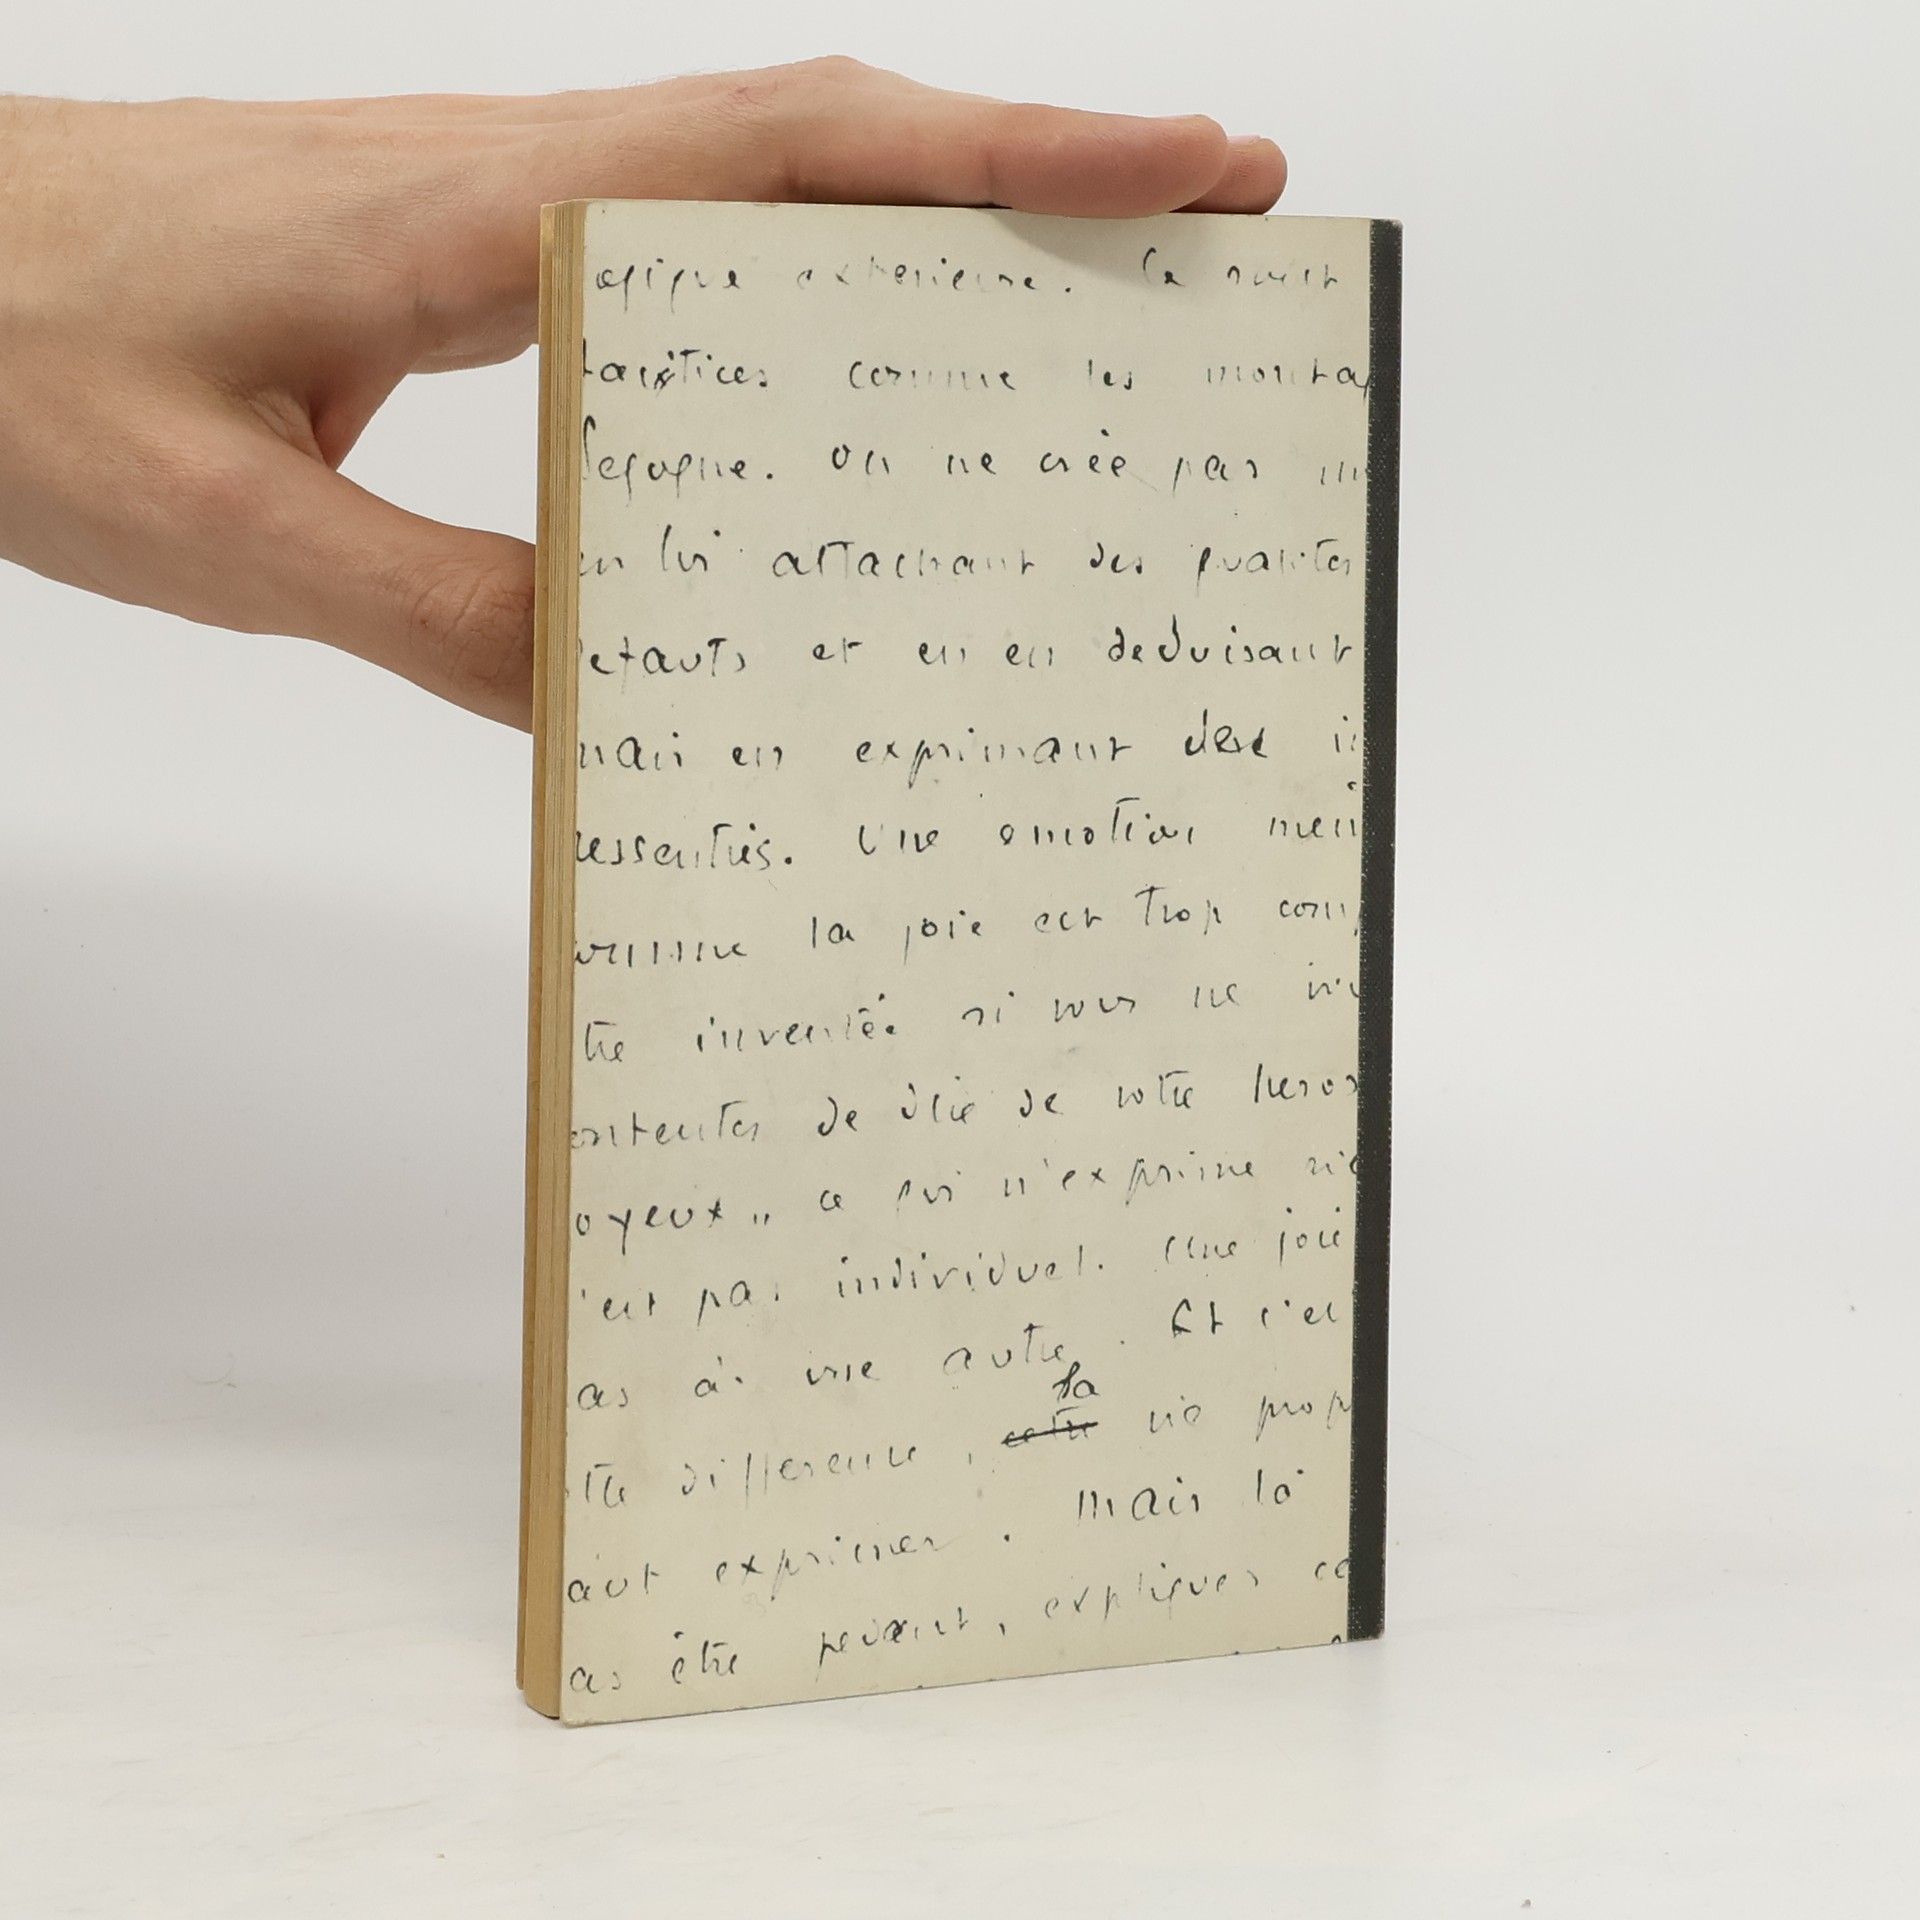 ogique exterieure. Ce sont
tastices comme les montag
Segogne. On ne crée pas un
en lui attachant des qualités
defauts et en en deduisant
mais en exprimant des i
ressenties. Une emotion men
omme la joie est trop comp
tre inventée si vous ne vou
ontentes de dire de votre heros
oyeux" ce qui n'exprime rie
'est pas individuel. Une joie
as à une autre. Et c'es
tte difference, cette la vie prop
aut exprimer. Mais là
as être pedant, expliquer ce